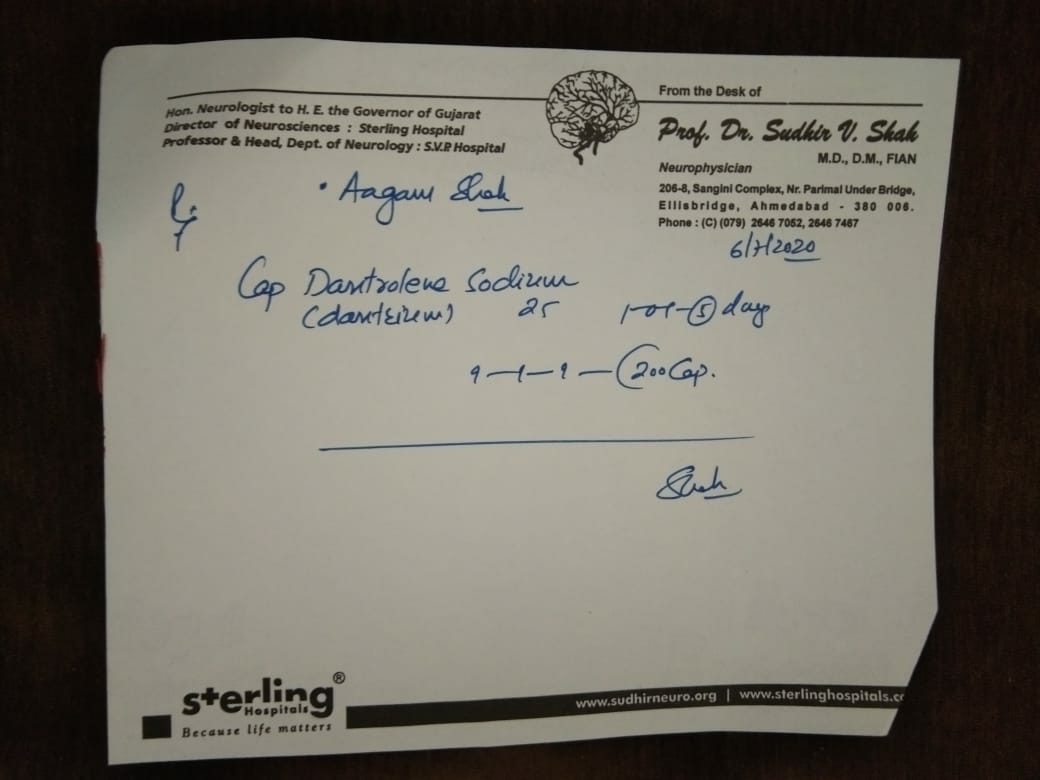 Hon. Neurologist to H. E. the Governor of Gujarat
Director of Neurosciences : Sterling Hospital
Professor & Head, Dept. of Neurology : S.V.P. Hospital
From the Desk of
Prof. Dr. Sudhir V. Shah
M.D., D.M., FIAN
Neurophysician
206-8, Sangini Complex, Nr. Parimal Under Bridge,
Ellisbridge, Ahmedabad - 380 006.
Phone : (C) (079) 2646 7052, 2646 7467
• Aagam Shah
6/7/2020
Cap Dantrolene Sodium
(dantrium) 25 days
200 Cap.
Shah
sterling®
Hospitals
Because life matters
www.sudhirneuro.org | www.sterlinghospitals.co